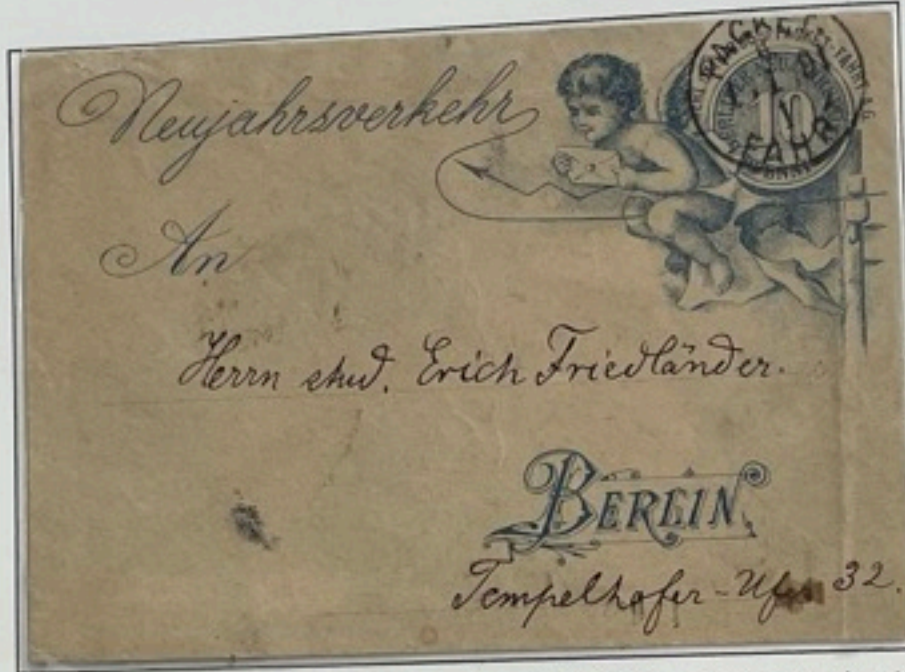 Neujahrsverkehr
PACKET
FAHRT
10
An
Herrn stud. Erich Friedländer.
BERLIN.
Tempelhofer-Ufer 32.